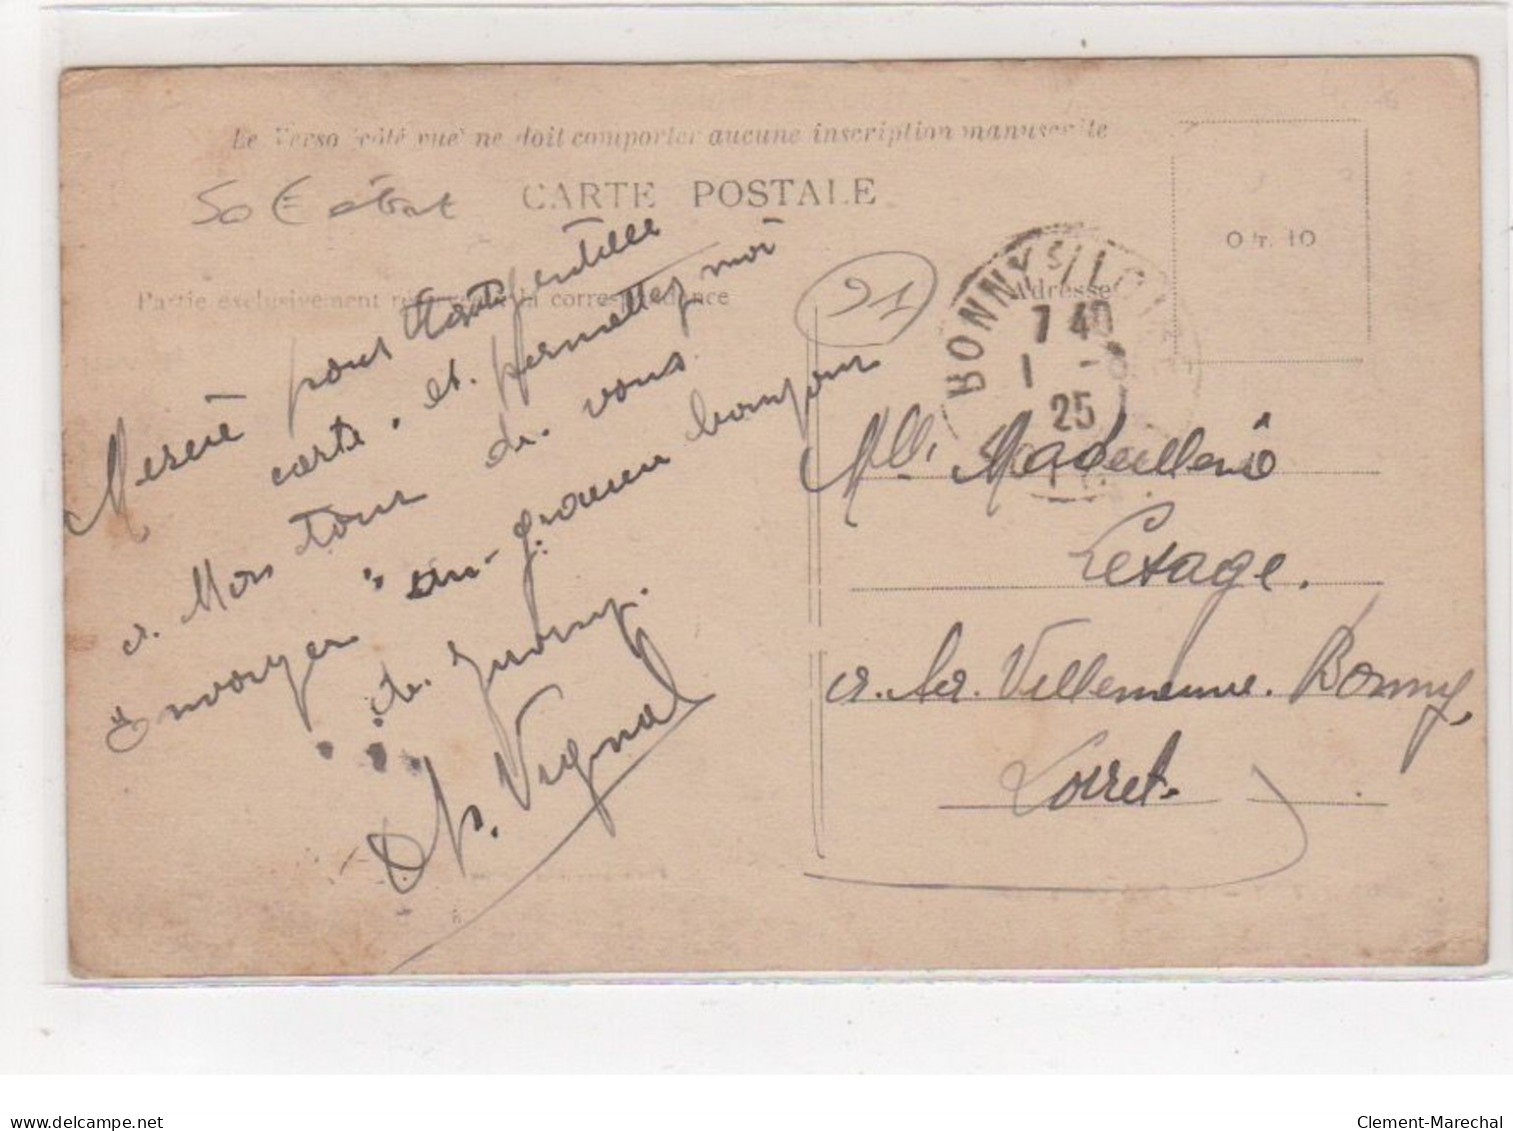 Le Verso (côté vue) ne doit comporter aucune inscription manuscrite
50 € état
CARTE POSTALE
Partie exclusivement réservée à la correspondance
Adresse
91
0 fr. 10
BONNY S/ LOIRE
7 40
1 -
25
Merçie pour gentille
carte, et permettez moi
a Mon tour de vous
envoyer un bonjour
de
Vignal
Mlle Madeleine
Lesage.
a La Villeneuve. Bonny,
Loiret.
delcampe.net
Clement-Marechal